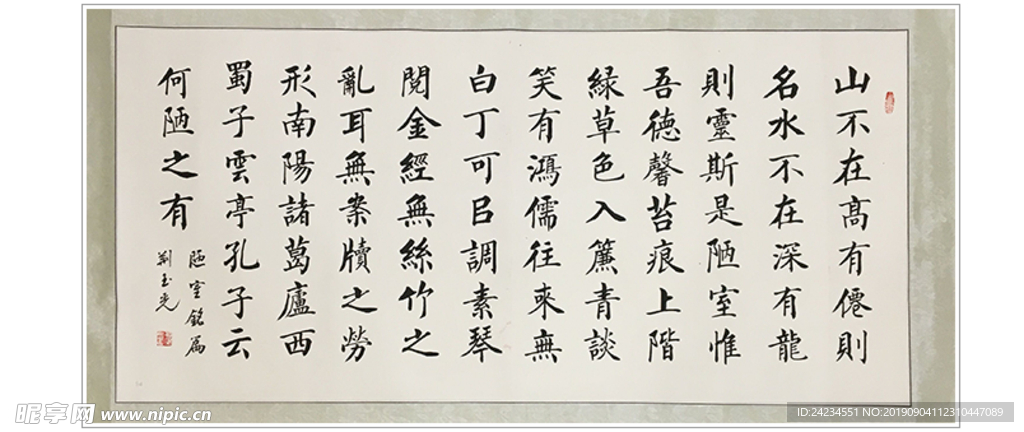 山不在高有僊則
名水不在深有龍
則靈斯是陋室惟
吾德馨苔痕上階
緑草色入簾青談
笑有鴻儒往來無
白丁可㠯調素琴
閱金經無絲竹之
亂耳無案牘之勞
形南陽諸葛廬西
蜀子雲亭孔子云
何陋之有
陋室銘篇
荆玉光
昵享网 www.nipic.cn
ID:24234551 NO:20190904112310447089